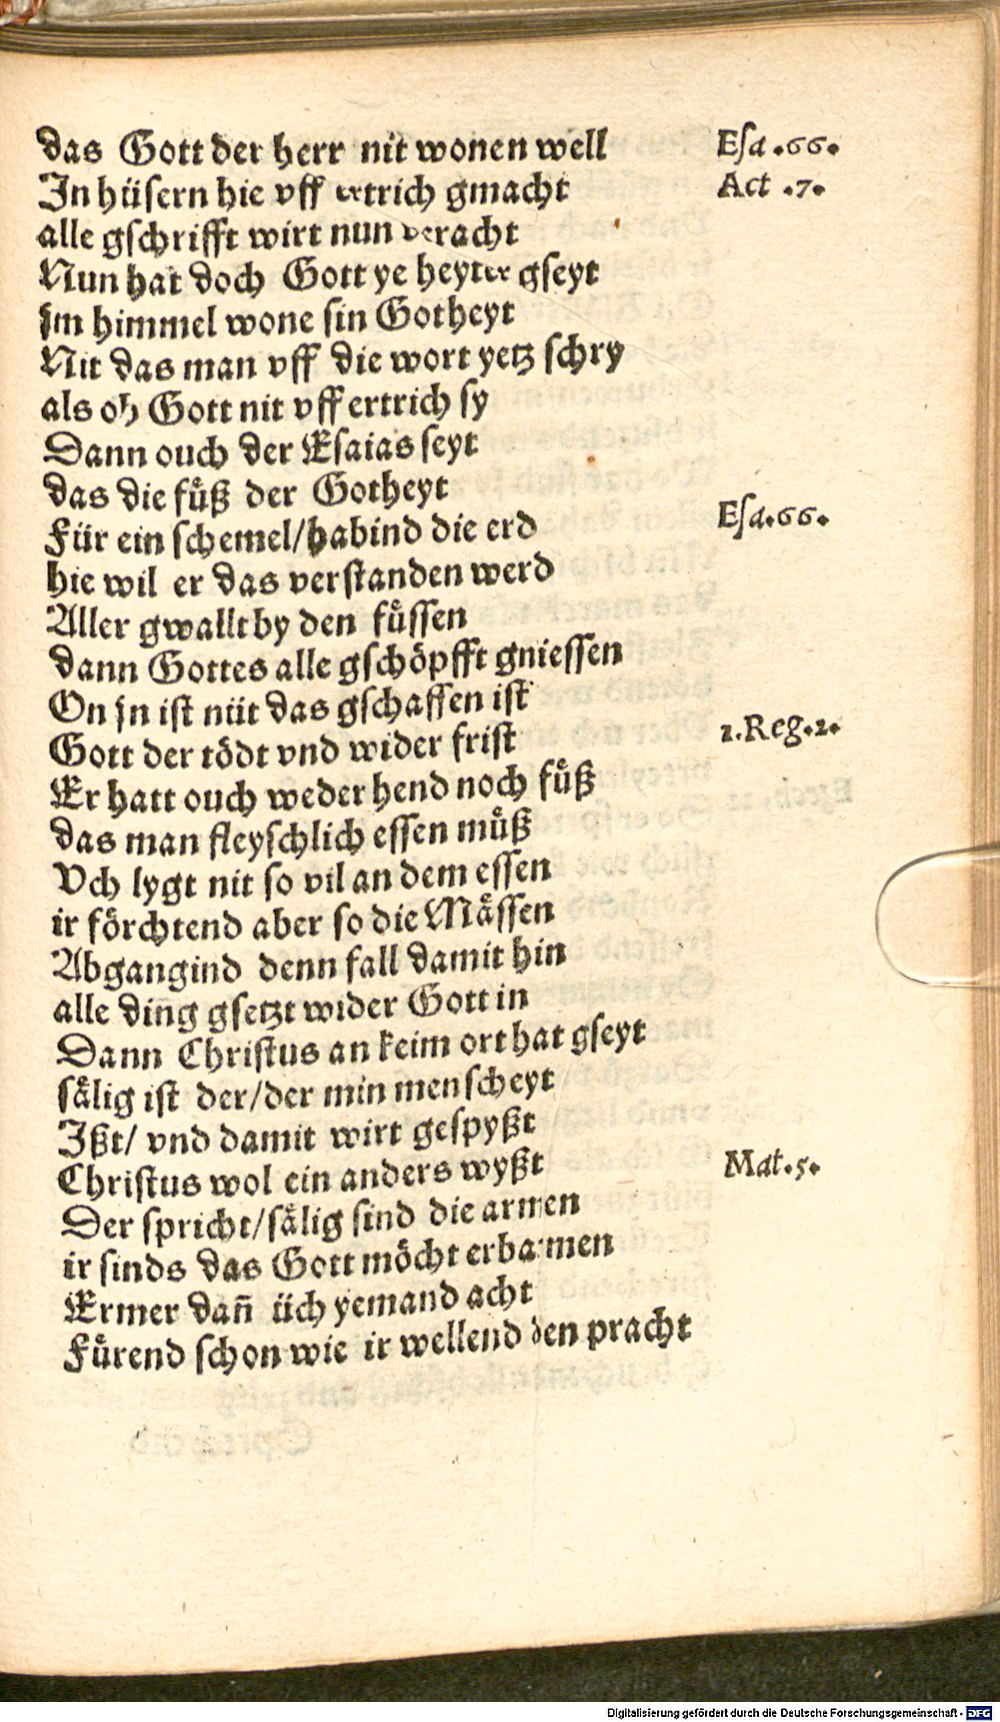 das Gott der herr nit wonen well
Esa .66.
In hüsern hie vff ertrich gmacht
Act .7.
alle gschrifft wirt nun veracht
Nun hat doch Gott ye heyter gseyt
jm himmel wone sin Gotheyt
Nit das man vff die wort yetz schry
als ob Gott nit vff ertrich sy
Dann ouch der Esaias seyt
das die fuͤß der Gotheyt
Esa.66.
Für ein schemel/habind die erd
hie wil er das verstanden werd
Aller gwallt by den fuͤssen
dann Gottes alle gschöpfft gniessen
On jn ist nüt das gschaffen ist
Gott der tödt vnd wider frist
1.Reg.2.
Er hatt ouch weder hend noch fuͤß
das man fleyschlich essen muͤß
Vch lygt nit so vil an dem essen
ir förchtend aber so die Mässen
Abgangind denn fall damit hin
alle diñg gsetzt wider Gott in
Dann Christus an keim ort hat gseyt
sälig ist der/der min menscheyt
Ißt/ vnd damit wirt gespyßt
Christus wol ein anders wyßt
Mat.5.
Der spricht/sälig sind die armen
ir sinds das Gott möcht erbarmen
Ermer dañ üch yemand acht
Fuͤrend schon wie ir wellend den pracht
Digitalisierung gefördert durch die Deutsche Forschungsgemeinschaft - DFG